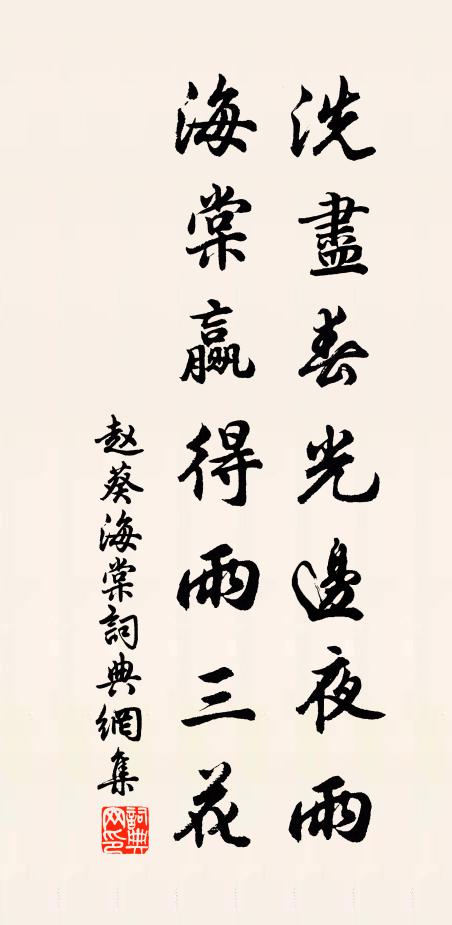 洗盡春光邊夜雨
海棠贏得兩三花
赵葵海棠詞典網集
詞典
网印